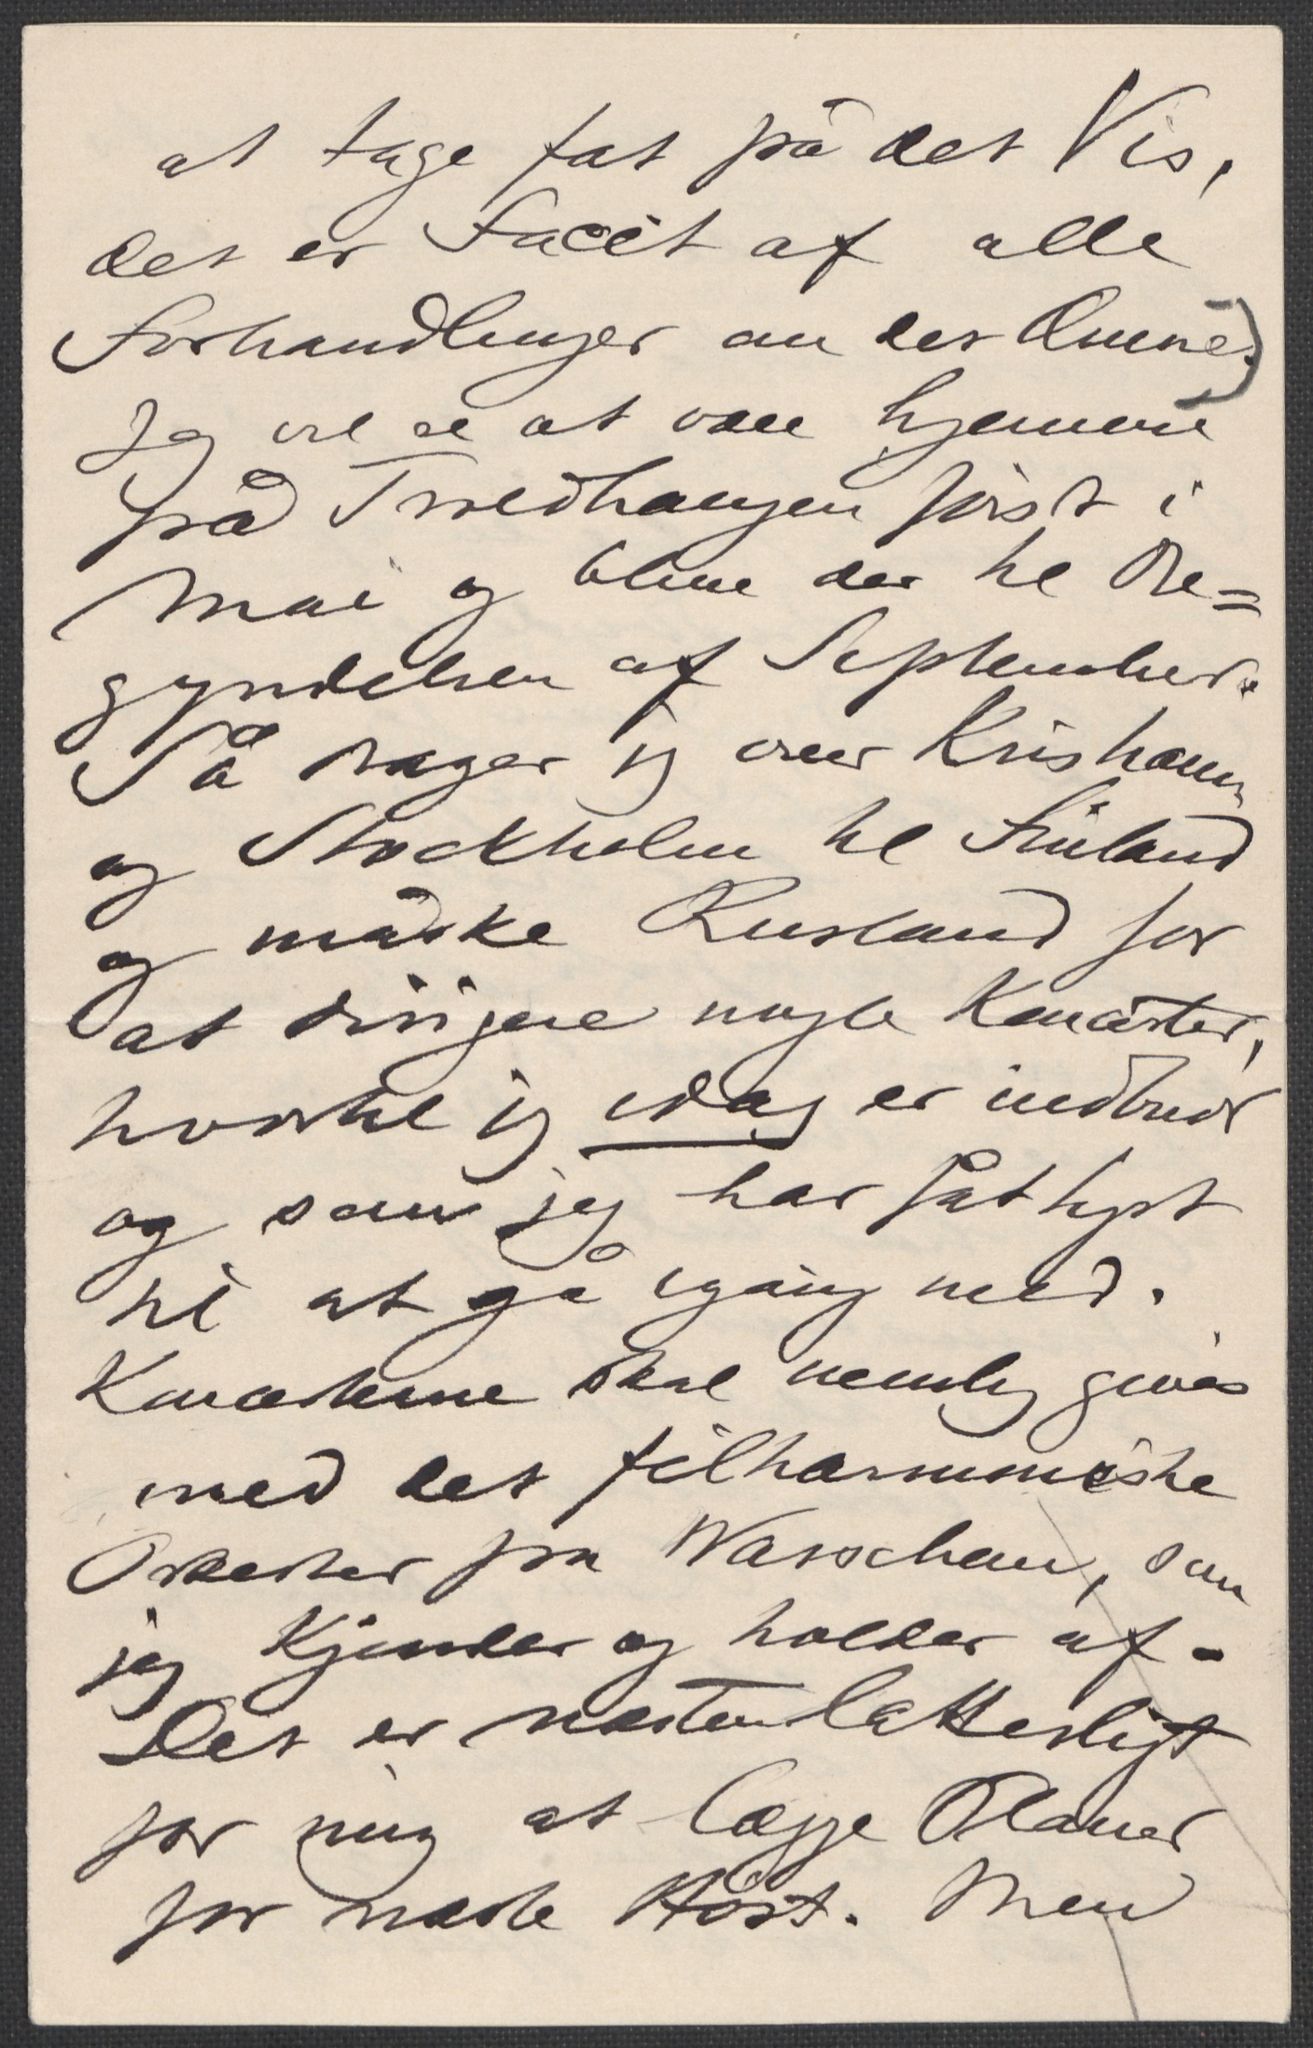 at tage fat på det Vis,
det er Facit af alle
Forhandlinger om det Emne.)
Jeg vil se at være hjemme
på Troldhaugen først i
Mai og blive der til Be=
gyndelsen af September.
Så drager jeg over Kristiania
og Stockholm til Finland
og måske Rusland for
at dirigere nogle Koncerter,
hvortil jeg idag er indbudt
og som jeg har fåt lyst
til at gå igang med.
Koncerterne skal nemlig gives
med det filharmoniske
Orkester fra Warschau, som
jeg kjender og holder af.
Det er næsten latterligt
for mig at lægge Planer
for næste Høst. Men